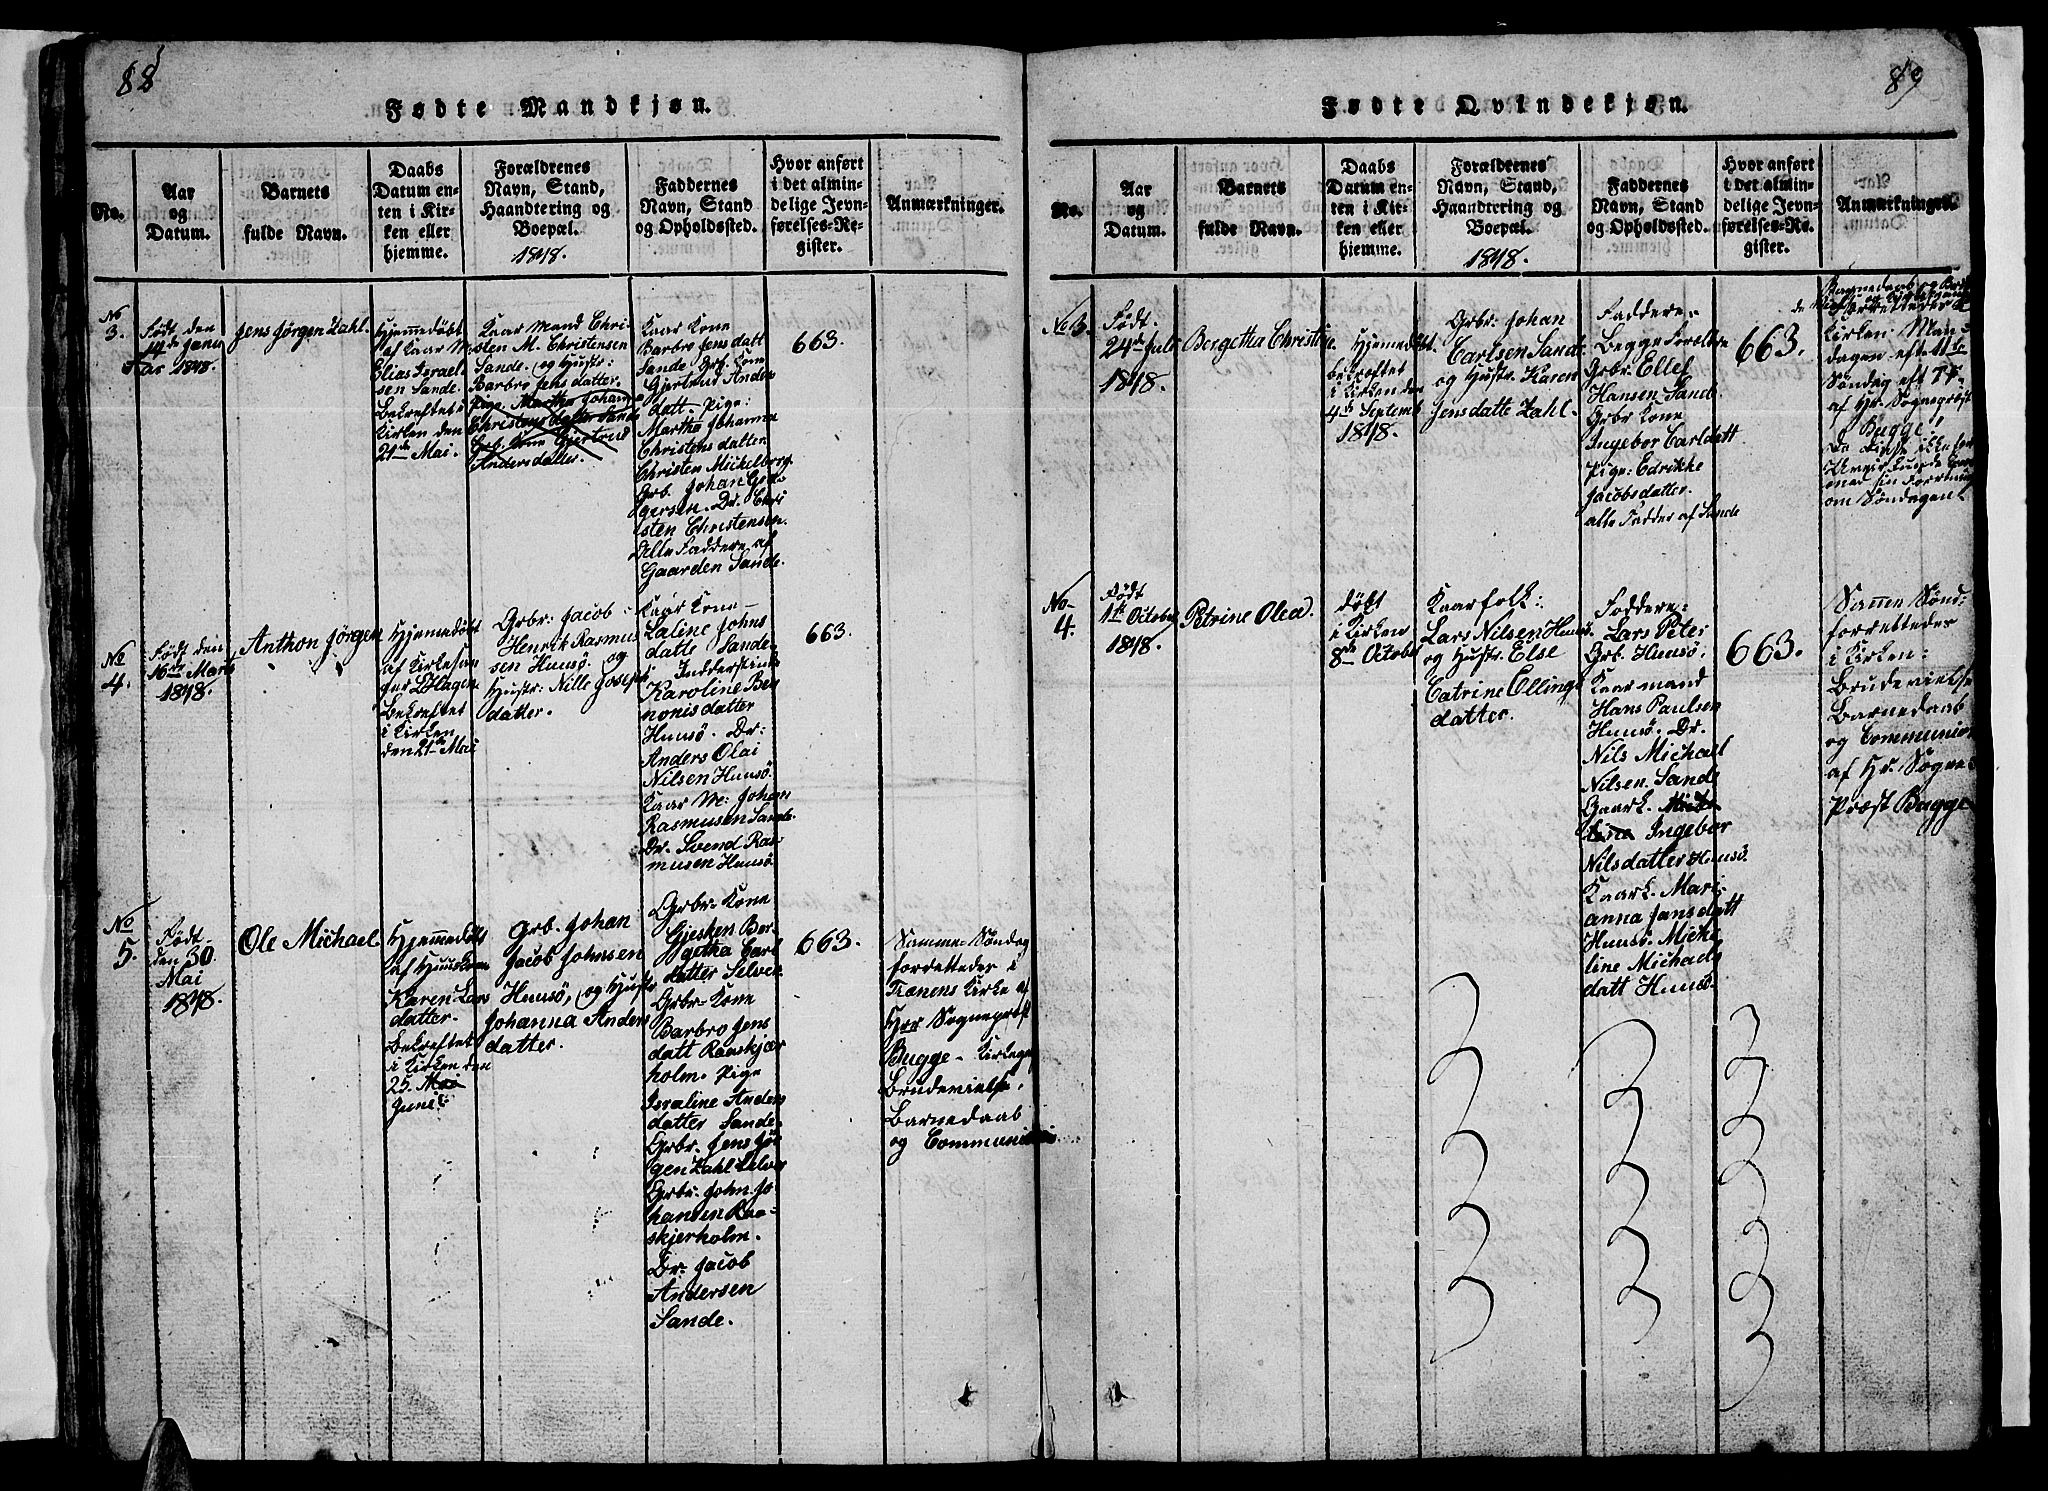 88
Fødte Mandkjøn.
No.
Aar
og
Datum.
Barnets
fulde Navn.
Daabs
Datum en-
ten i Kir-
ken eller
hjemme.
Forældrenes
Navn, Stand,
Haandtering og
Boepæl.
1848.
Faddernes
Navn, Stand
og Opholdssted.
Hvor anført
i det almin-
delige Jevn-
førelses-Re-
gister.
Anmærkninger.
No
3.
Født den
14de Janu
ar 1848.
Jens Jørgen Zahl.
Hjemmedøbt
af Kaar M.
Elias Israel
sen Sande.
Bekreftet i
Kirken den
21de Mai.
Kaar Mand Chri-
sten M. Christensen
Sande. og Hustr:
Barbro Jens datter.
Pige. Martha Johanna
Christensdatter Sande
Grb. Kone Gjertrud
Andersdatter.
Kaar Kone
Barbro Jensdatt
Sande. Grb. Kone
Gjertrud Anders
datt. Pige:
Martha Johanna
Christensdatter
Christen Mickelborg
Grb. Johan Gre-
gersen. Dr. Chri
sten Christensen.
Alle Faddere af
Gaarden Sande.
663.
No
4.
Født den
16de Marts
1848.
Anthon Jørgen
Hjemmedøbt
af Kirkesan
ger L Hagen
Bekreftet
i Kirken
den 21de Mai
Grbr: Jacob
Henrik Rasmus
sen Huusö. og
Hustr: Nille Joseps
datter.
Kaar Kone
Laline Johns
datte Sande.
Inderstinde
Karoline Ben
nonis datter
Huusö. Dr:
Anders Olai
Nilsen Huusö.
Kaar M: Johan
Rasmusen Sande.
Dr. Svend Ras
musen Huusö.
663.
No
5.
Født
den 30
Mai
1848.
Ole Michael
Hjemmedøbt
af Huuskone
Karen Lars
datter.
Bekreftet
i Kirken den
25. Mai
Juni.
Grb. Johan
Jacob Johnsen
Huusö, og Hustr
Johanna Anders
datter.
Grbr: Kone
Gjesken Ber
getha Carl
datter Selver
Grbr: Kone
Barbro Jens
datt Raaskjær
holm. Pige
Israline Anders
datter Sande.
Grbr. Jens Jør
gen Zahl Selver
Grbr. John Jo-
hansen Raa-
skjerholm.
Dr: Jacob
Andersen
Sande.
663.
Samme Søndag
forrettedes i
Trænens Kirke af
Hrr Sognepræst
Bugge
Brudevielse.
Barnedaab
og Communion
89
Fødte Qvindekjøn.
No.
Aar
og
Datum.
Barnets
fulde Navn.
Daabs
Datum en-
ten i Kir-
ken eller
hjemme.
Forældrenes
Navn, Stand,
Haandtering og
Boepæl.
1848.
Faddernes
Navn, Stand
og Opholdssted.
Hvor anført
i det almin-
delige Jevn-
førelses-Re-
gister.
Anmærkninger.
No 3.
Født.
24de Juli
1848.
Bergetha Christine.
Hjemmedøbt.
bekreftet
i Kirken den
4de Septemb
1848.
Grbr: Johan
Carlsen Sande
og Hustr. Karen
Jensdatte Zahl.
Faddere.
Begge Foreldre
Grbr. Ellef
Hansen Sande.
Grbr Kone
Ingebor Carldatt
Pige: Edrikke
Jacobsdatter.
alle Fadder af Sande
663.
Barnedaab og
Kirken Man
dagen eft 11te
Søndag eft Tr.
af Hr. Sognepræst
Bugge!
om Søndagen!
No
4.
Født
1ste October
1848.
Petrine Olea.
døbt
i Kirken
8de October
Kaarfolk:
Lars Nilsen Huusö,
og Hustr. Else
Catrine Ellings
datter.
Faddere:
Lars Peter
Grb. Huusö.
Kaarmand
Hans Paulsen
Huusö. Dr.
Nils Michael
Nilsen. Sande
Gaark.
Ingebor
Nilsdatter Huusö.
Kaark. Mari-
anna Jansdatt
Huusö. Micke
line Michaels
datt Huusö.
663.
Samme Sønd:
forrettedes
i Kirken:
Brudevielse
Barnedaab
og Communion
af Hr. Sogne
Præst Bugge